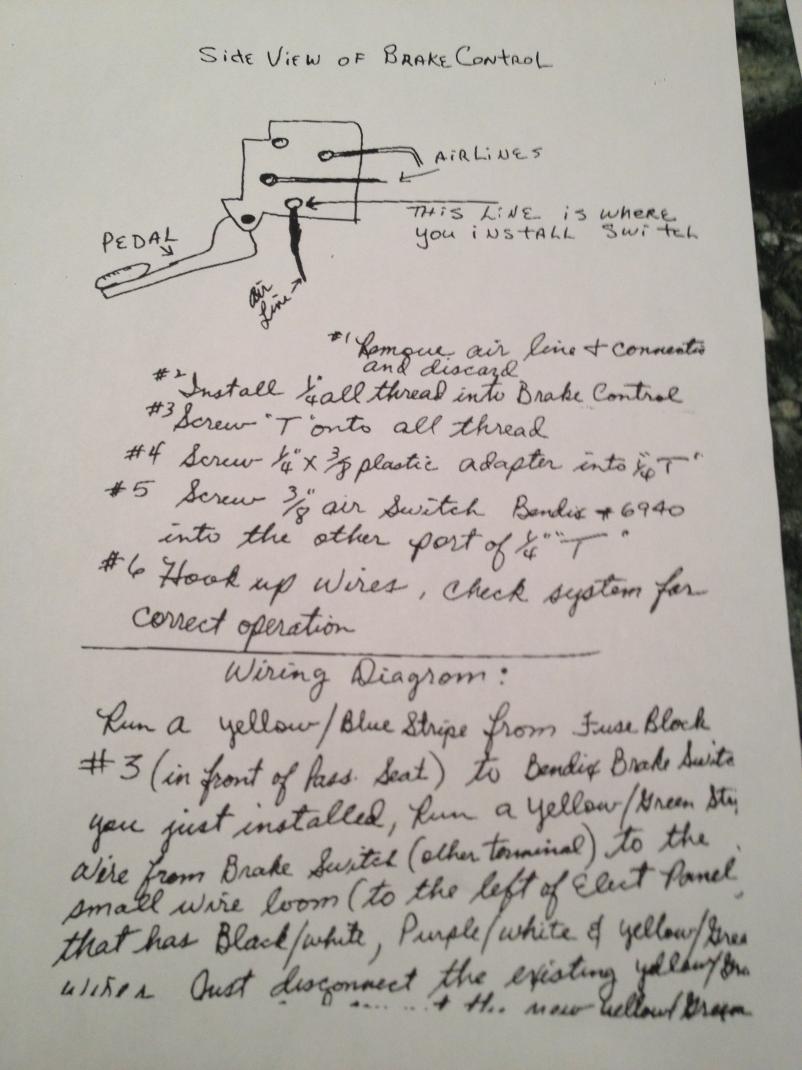 Side View of Brake Control
Airlines
This line is where
you install switch
Pedal
Air
Line
#1 Remove air line & connectio
and discard
#2 Install 1/4" all thread into Brake Control
#3 Screw "T" onto all thread
#4 Screw 1/4" x 3/8 plastic adapter into 1/4" T"
#5 Screw 3/8" air Switch Bendix #6940
into the other port of 1/4" "T"
#6 Hook up wires, check system for
correct operation
Wiring Diagrom:
Run a yellow/Blue Stripe from Fuse Block
#3 (in front of Pass. Seat) to Bendix Brake Switc
you just installed, Run a Yellow/Green Stri
Wire from Brake Switch (other terminal) to the
small wire loom (to the left of Elect Panel
that has Black/white, Purple/white & yellow/Gree
wires Just disconnect the existing yellow/Gre
the new Yellow/Green